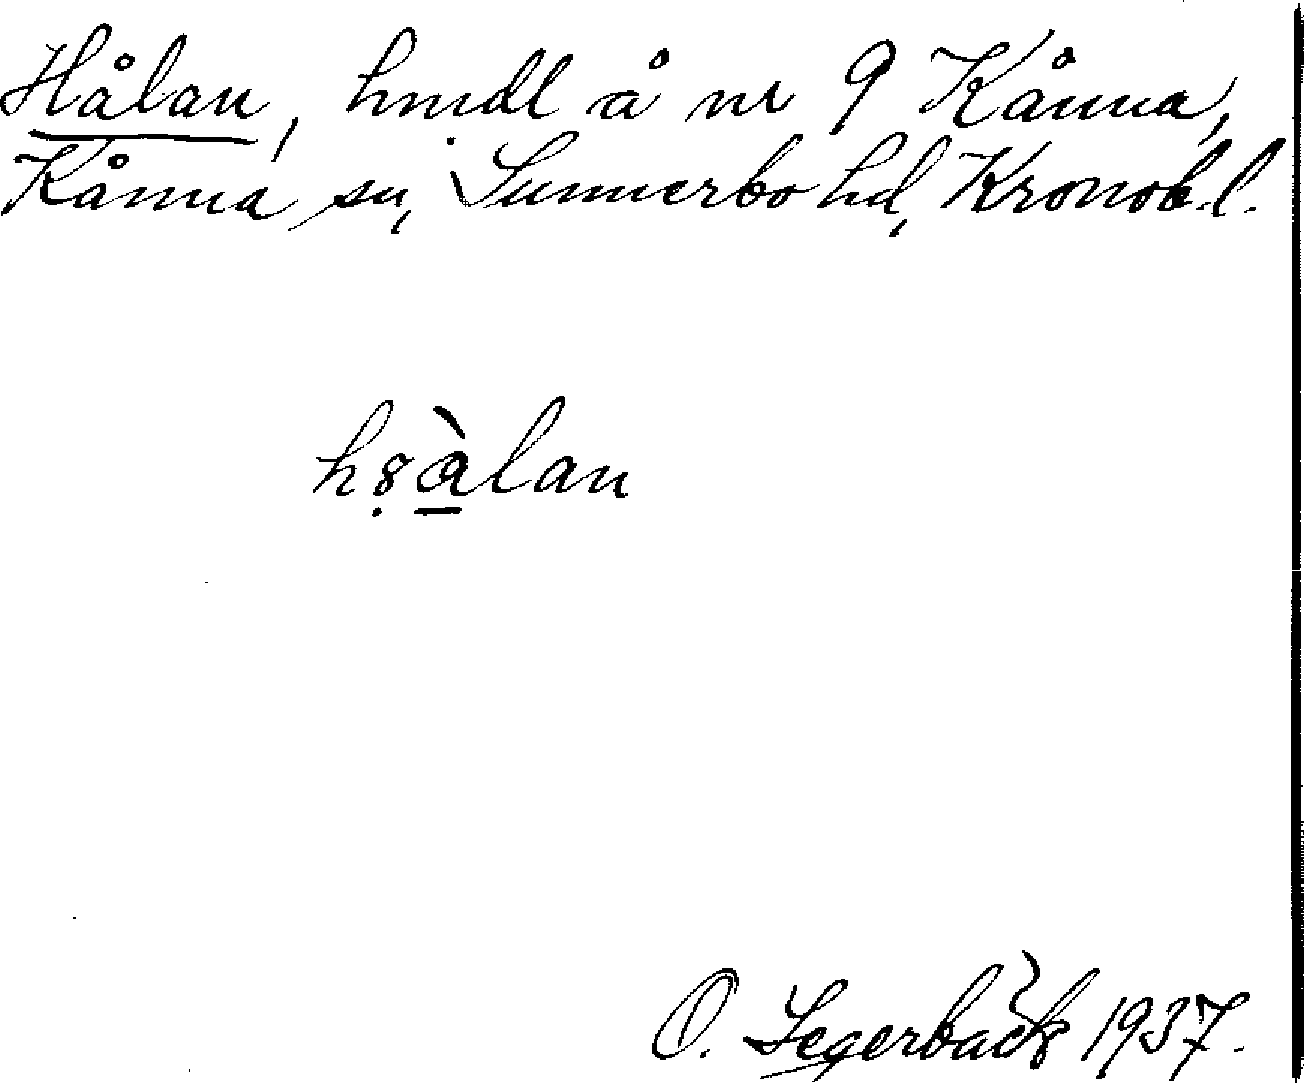 Hålan, hmdl å nr 9 Kånna,
Kånna sn, Sunnerbo hd, Kronob. l.
hṣà̱lan
O. Segerbäck 1937.